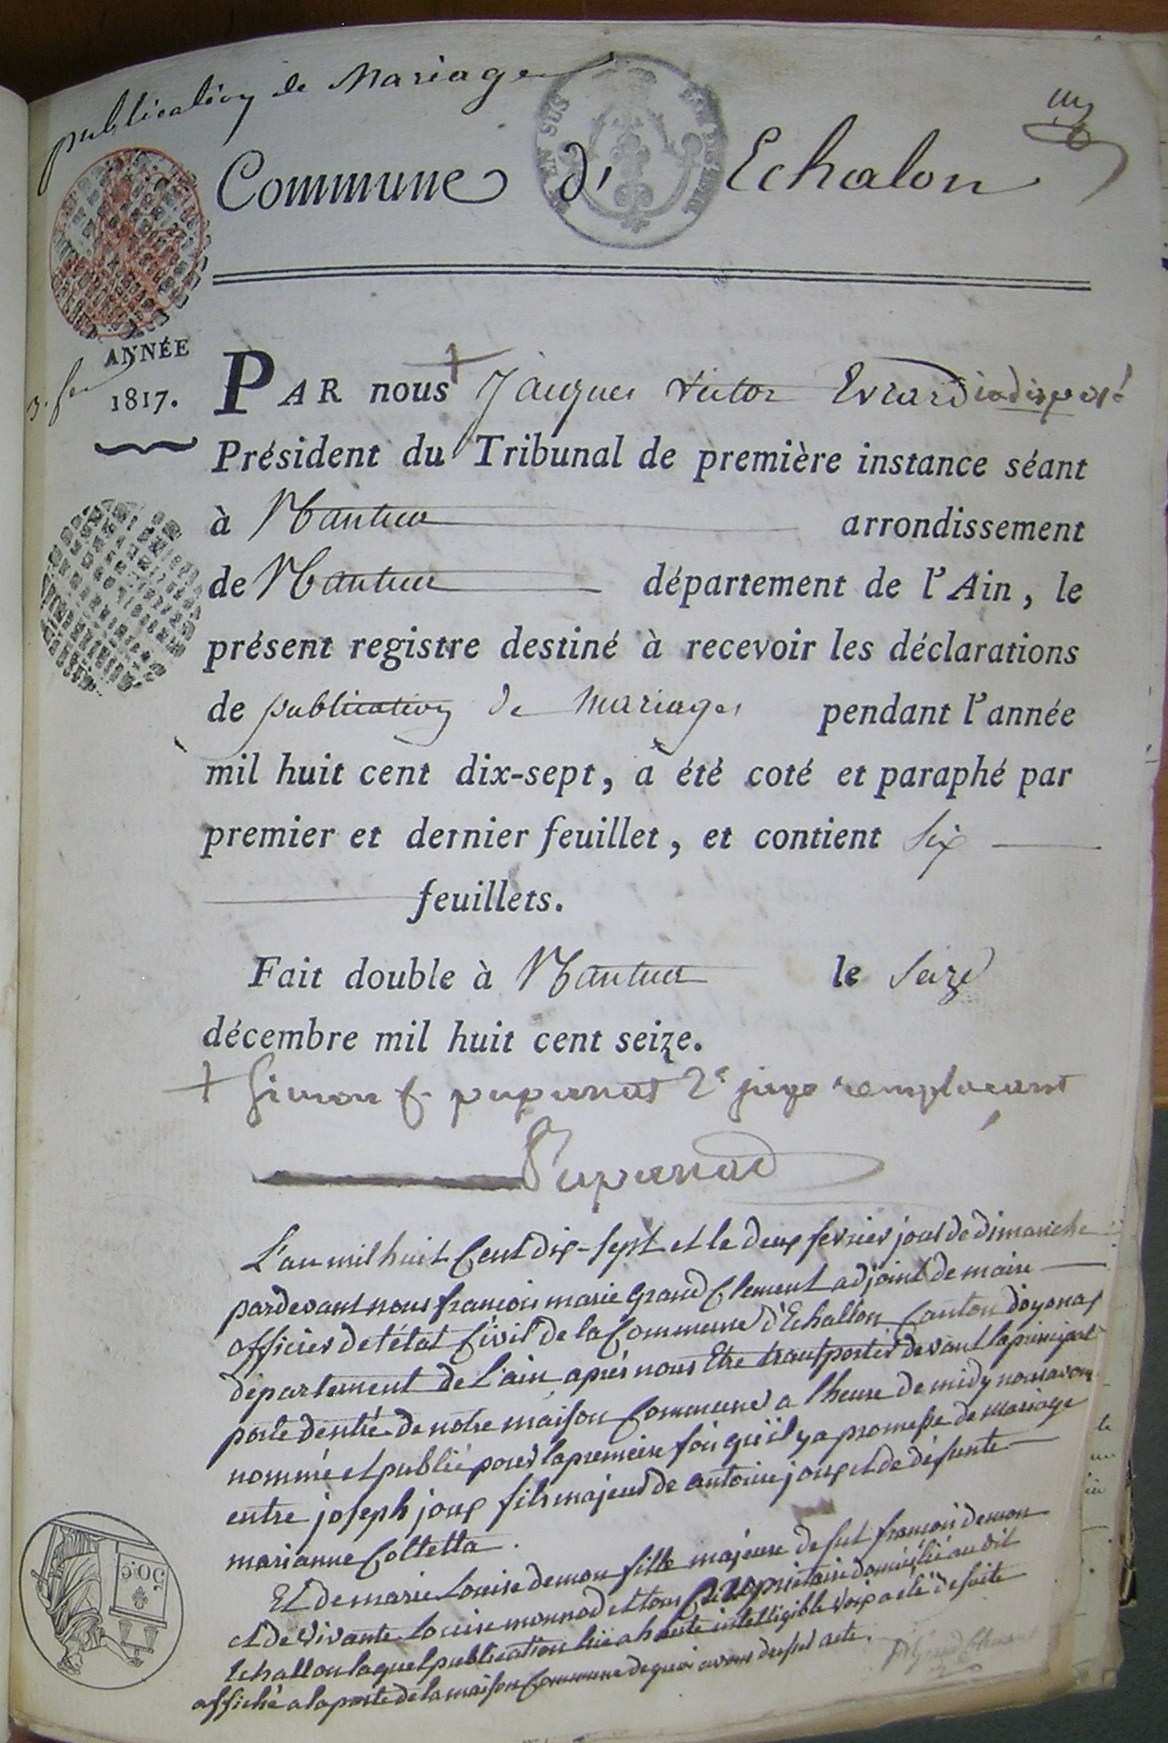 publication de Mariage
Commune d' Echalon
ANNÉE
1817.
PAR nous + Jacques Victor Evrard indisposé
Président du Tribunal de première instance séant
à Nantua arrondissement
de Nantua département de l'Ain, le
présent registre destiné à recevoir les déclarations
de publication de mariages pendant l'année
mil huit cent dix-sept, a été coté et paraphé par
premier et dernier feuillet, et contient six
feuillets.
Fait double à Nantua le seize
décembre mil huit cent seize.
+ Simon f. pupunat 2e juge remplacant
Pupunat
L'an mil huit Cent dix-sept et le deux fevrier jour de dimanche
pardevant nous francois marie Grand Clement adjoint de maire
officier de l'état Civil de la Commune d'Echallon Canton d'oyonax
département de L'ain après nous Etre transportés devant la principal
porte dentré de notre maison Commune a l'heure de midy nous avons
nommé et publié pour la premeire foi qu'il y a promesse de mariage
entre joseph joux fils majeur de antoine joux et de défunte
marianne Colletta.
Et de marie Louise demon fille majeure de fut francois demon
et de vivante Louise monnod et tous propriétaire domicilié au dit
Echallon laquel publication lüe a haute intelligible voix a été de suite
affiché a la porte de la maison Commune de quoi avons dressé acte.
50 c.